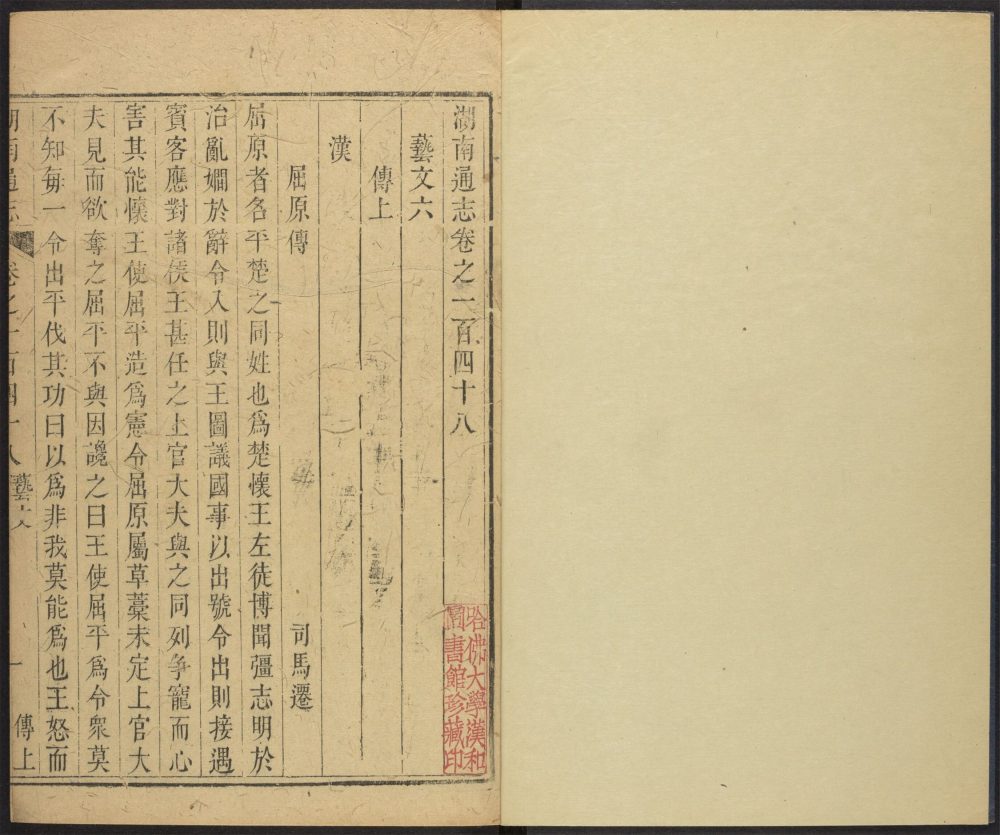 湖南通志卷之一百四十八
藝文六
傳上
漢
屈原傳 司馬遷
屈原者名平楚之同姓也爲楚懷王左徒博聞彊志明於
治亂嫺於辭令入則與王圖議國事以出號令出則接遇
賓客應對諸侯王甚任之上官大夫與之同列爭寵而心
害其能懷王使屈平造爲憲令屈原屬草藁未定上官大
夫見而欲奪之屈平不與因讒之曰王使屈平爲令衆莫
不知每一令出平伐其功曰以爲非我莫能爲也王怒而
湖南通志 卷之一百四十八 藝文 一 傳上
哈佛大學漢和
圖書館珍藏印